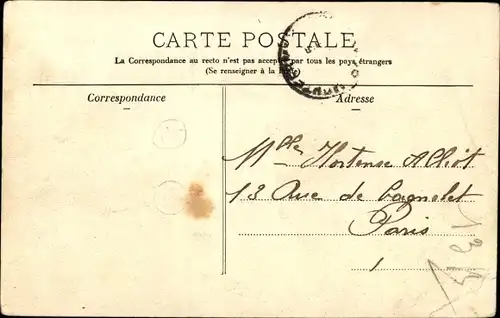 CARTE POSTALE
La Correspondance au recto n'est pas acceptée par tous les pays étrangers
(Se renseigner à la
Correspondance
Adresse
Mlle Hortense Alliot
13 Rue de Bagnolet
Paris